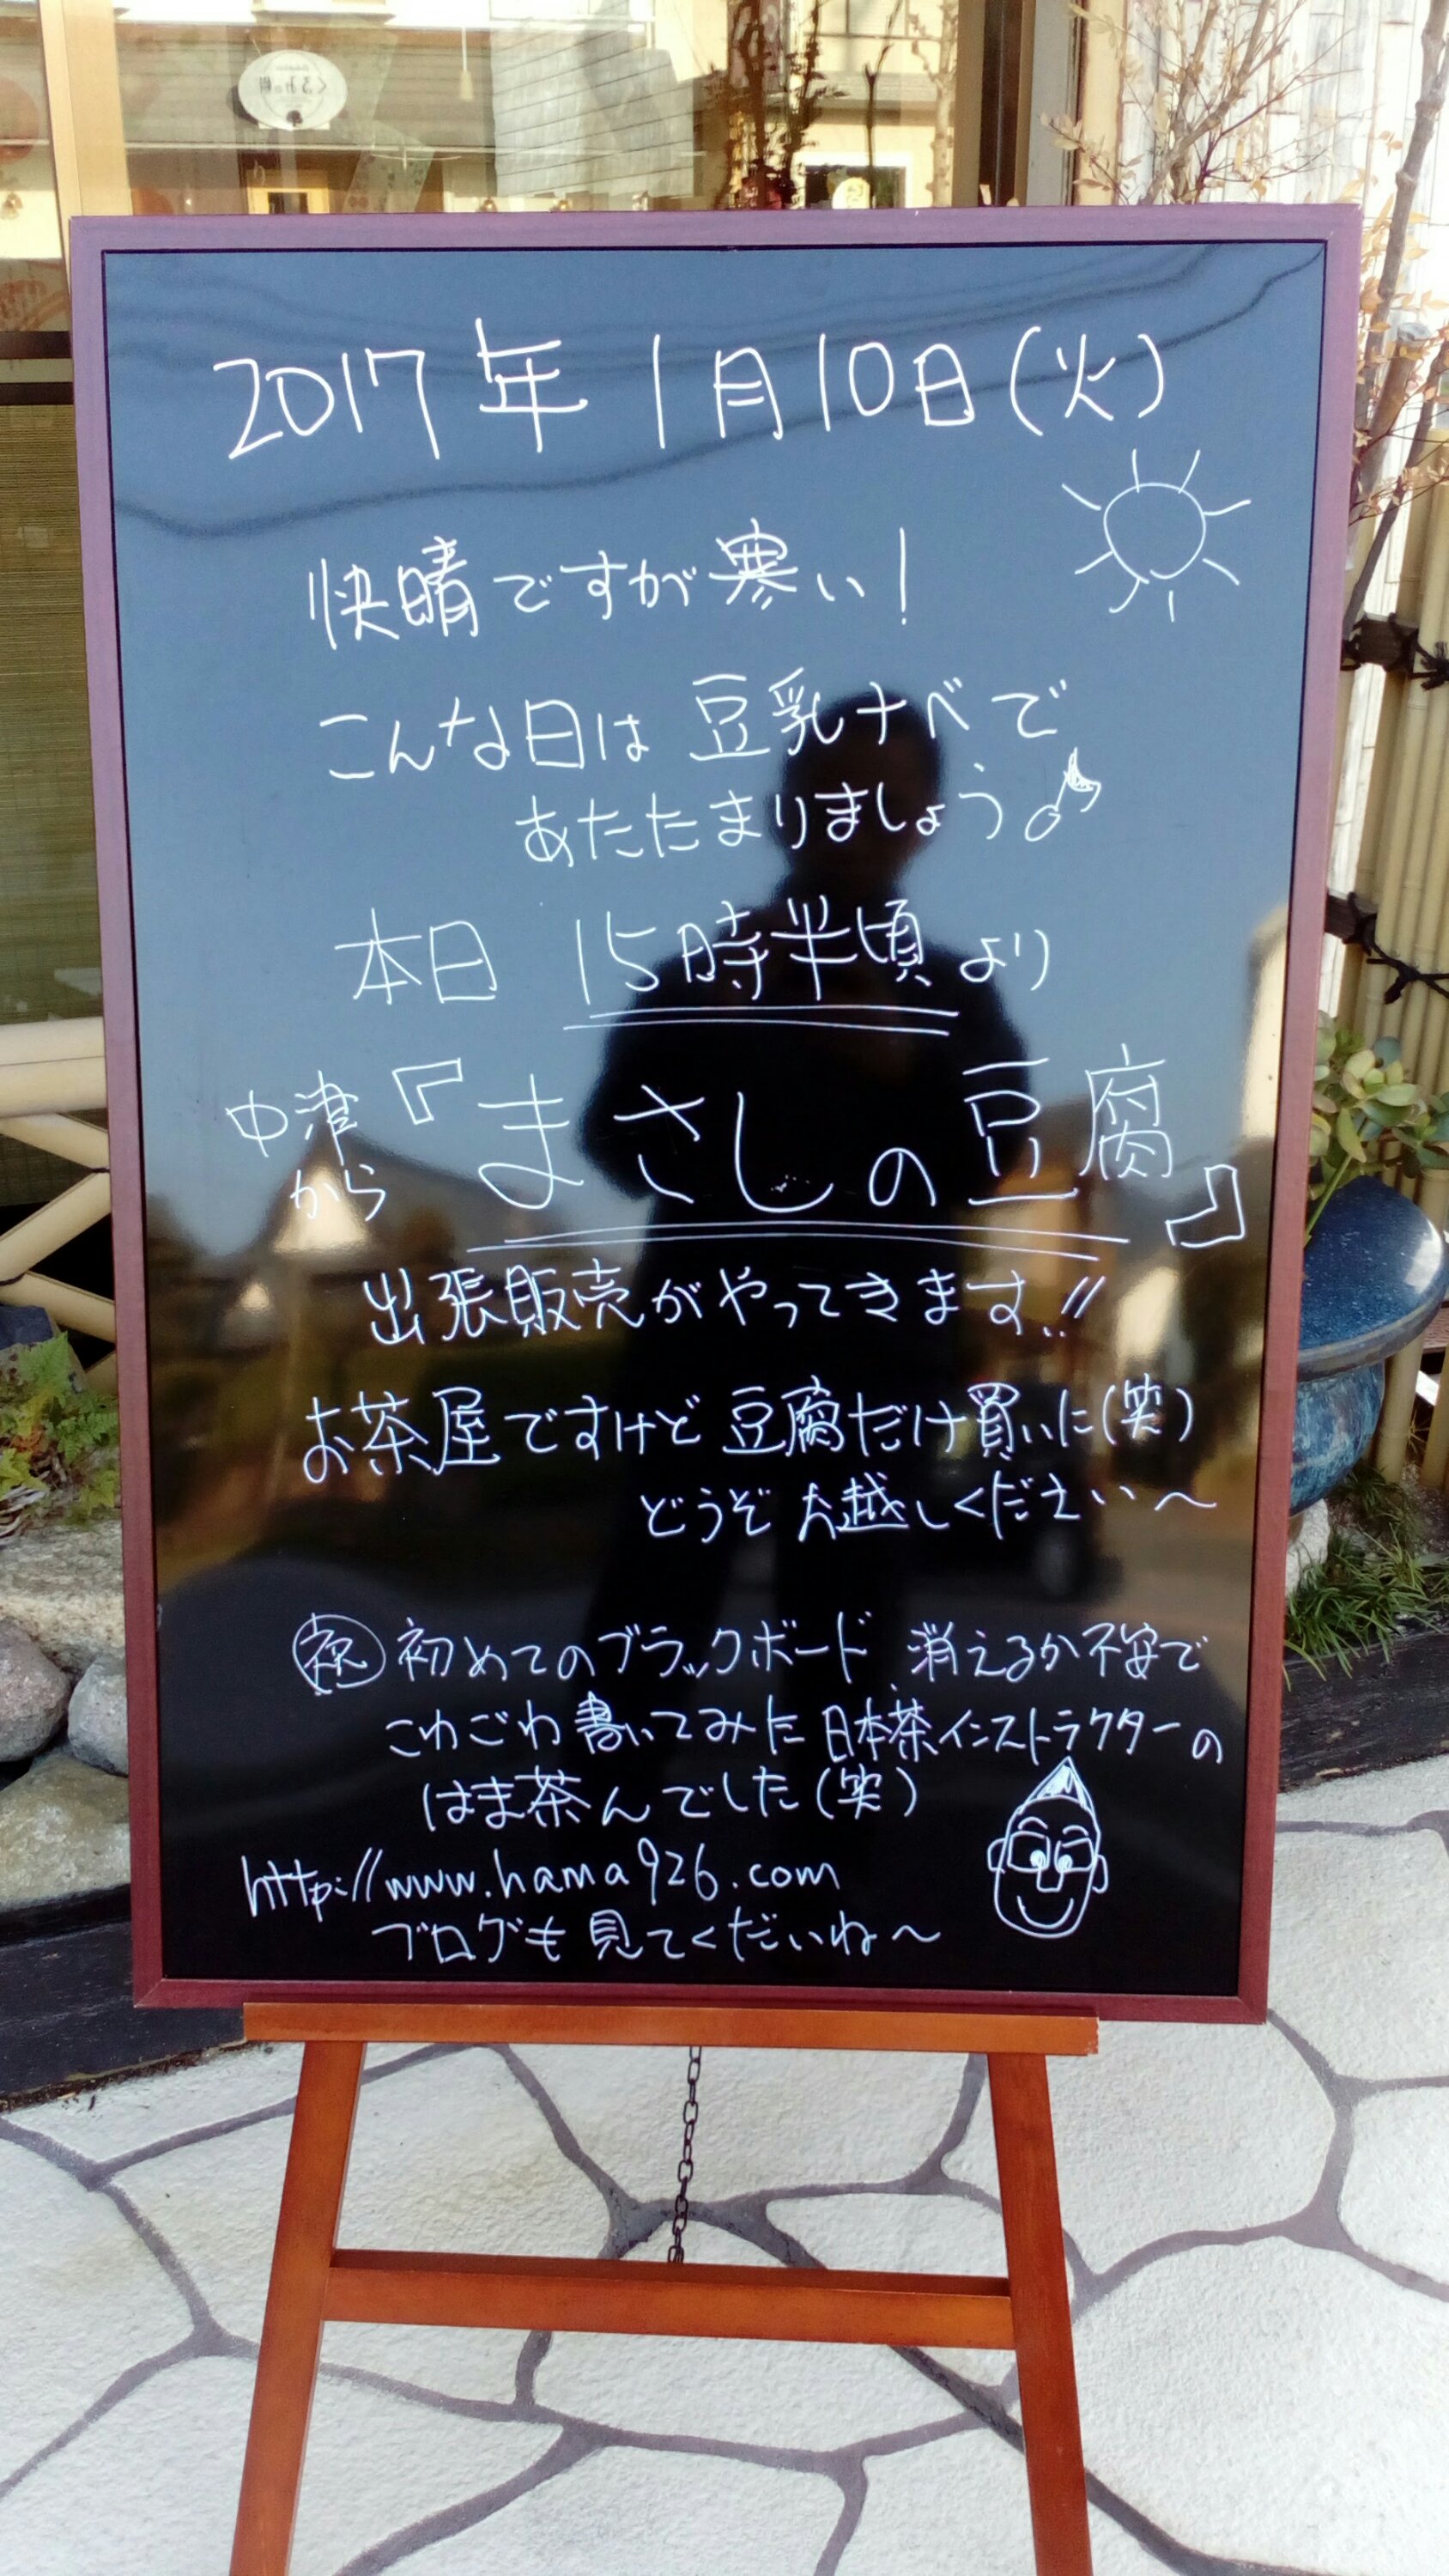 2017年1月10日(火)
快晴ですが寒い!
こんな日は豆乳ナベで
あたたまりましょう♪
本日 15時半頃より
中津から『まさしの豆腐』
出張販売がやってきます!!
お茶屋ですけど豆腐だけ買いに(笑)
どうぞお越しください〜
祝 初めてのブラックボード 消えるか不安で
こわごわ書いてみた日本茶インストラクターの
はま茶んでした(笑)
http://www.hama926.com
ブログも見てくだいね〜